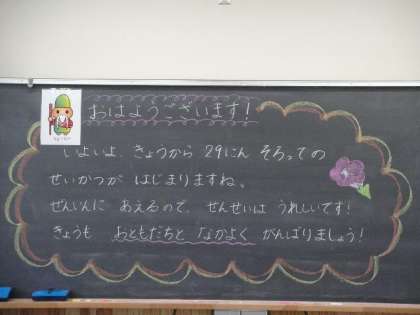 おはようございます!
いよいよ、きょうから 29にん そろっての
せいかつが はじまりますね。
ぜんいんに あえるので、せんせいは うれしいです!
きょうも おともだちと なかよく がんばりましょう!